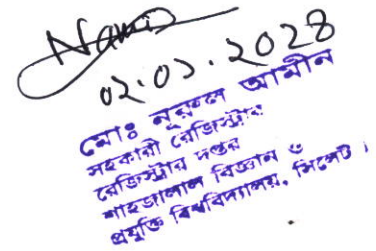 02.01.2028
মোঃ নূরুল আমীন
সহকারী রেজিস্ট্রার
রেজিস্ট্রার দপ্তর
শাহজালাল বিজ্ঞান ও
প্রযুক্তি বিশ্ববিদ্যালয়, সিলেট।